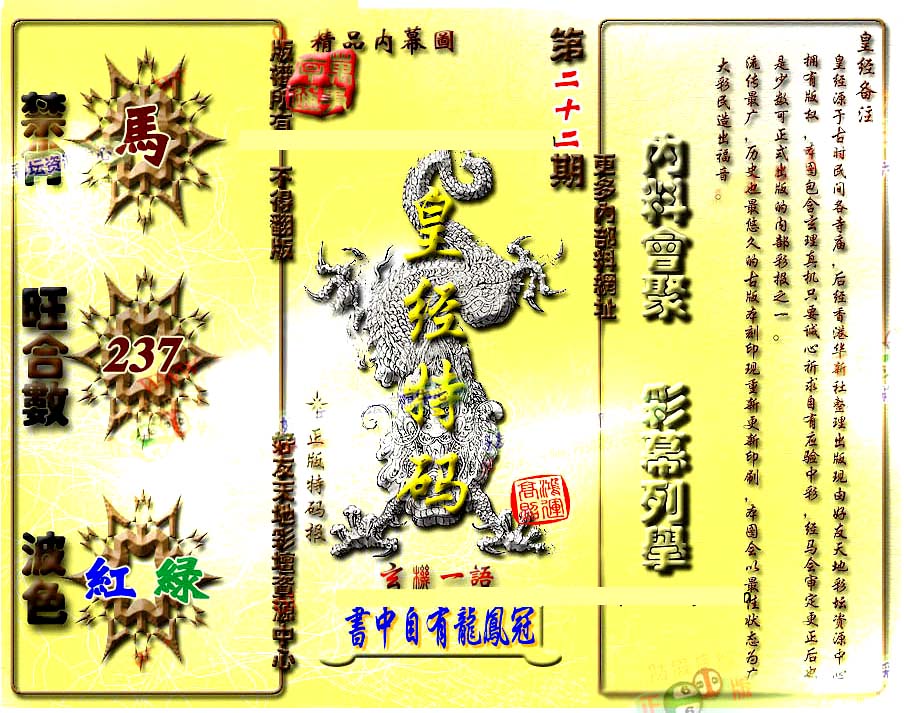 精品内幕圖
第二十二期
版權所有 不得翻版
好友天地彩壇資源中心
禁肖
馬
旺合數
237
波色
紅 綠
皇经特码
正版特码报
玄機一語
書中自有龍鳳冠
更多內部料網址
內料會聚
彩幕列舉
皇经备注
皇经源于古时民间各寺庙,后经香港华新社整理出版现由好友天地彩坛资源中心
拥有版权,本图包含玄理真机只要诚心祈求自有应验中彩,经马会审定更正后也
是少数可正式出版的内部彩报之一。
流传最广,历史也最悠久的古版本刻印现重新更新印刷,本图会以最佳状态为广
大彩民造出福音。